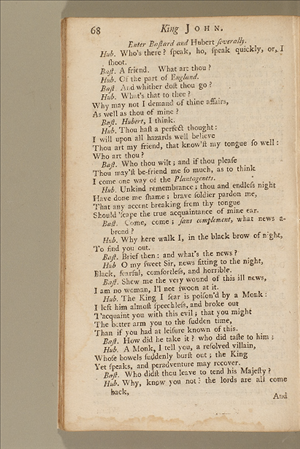 68 King JOHN.
Enter Bastard and Hubert severally.
Hub. Who's there? speak, ho, speak quickly, or, I
shoot.
Bast. A friend. What art thou?
Hub. Of the part of England.
Bast. And whither dost thou go?
Hub. What's that to thee?
Why may not I demand of thine affairs,
As well as thou of mine?
Bast. Hubert, I think.
Hub. Thou hast a perfect thought:
I will upon all hazards well believe
Thou art my friend, that know'st my tongue so well:
Who art thou?
Bast. Who thou wilt; and if thou please
Thou may'st be-friend me so much, as to think
I come one way of the Plantagenets.
Hub. Unkind remembrance; thou and endless night
Have done me shame; brave soldier pardon me,
That any accent breaking from thy tongue
Should 'scape the true acquaintance of mine ear.
Bast. Come, come; sans complement, what news a-
broad?
Hub. Why here walk I, in the black brow of night,
To find you out.
Bast. Brief then: and what's the news?
Hub O my sweet Sir, news fitting to the night,
Black, fearful, comfortless, and horrible.
Bast. Shew me the very wound of this ill news,
I am no woman, I'l not swoon at it.
Hub. The King I fear is poison'd by a Monk:
I left him almost speechless, and broke out
T'acquaint you with this evil; that you might
The better arm you to the sudden time,
Than if you had at leisure known of this.
Bast. How did he take it? who did taste to him;
Hub. A Monk, I tell you, a resolved villain,
Whose bowels suddenly burst out; the King
Yet speaks, and peradventure may recover.
Bast. Who didst thou leave to tend his Majesty?
Hub. Why, know you not? the lords are all come
back,
And